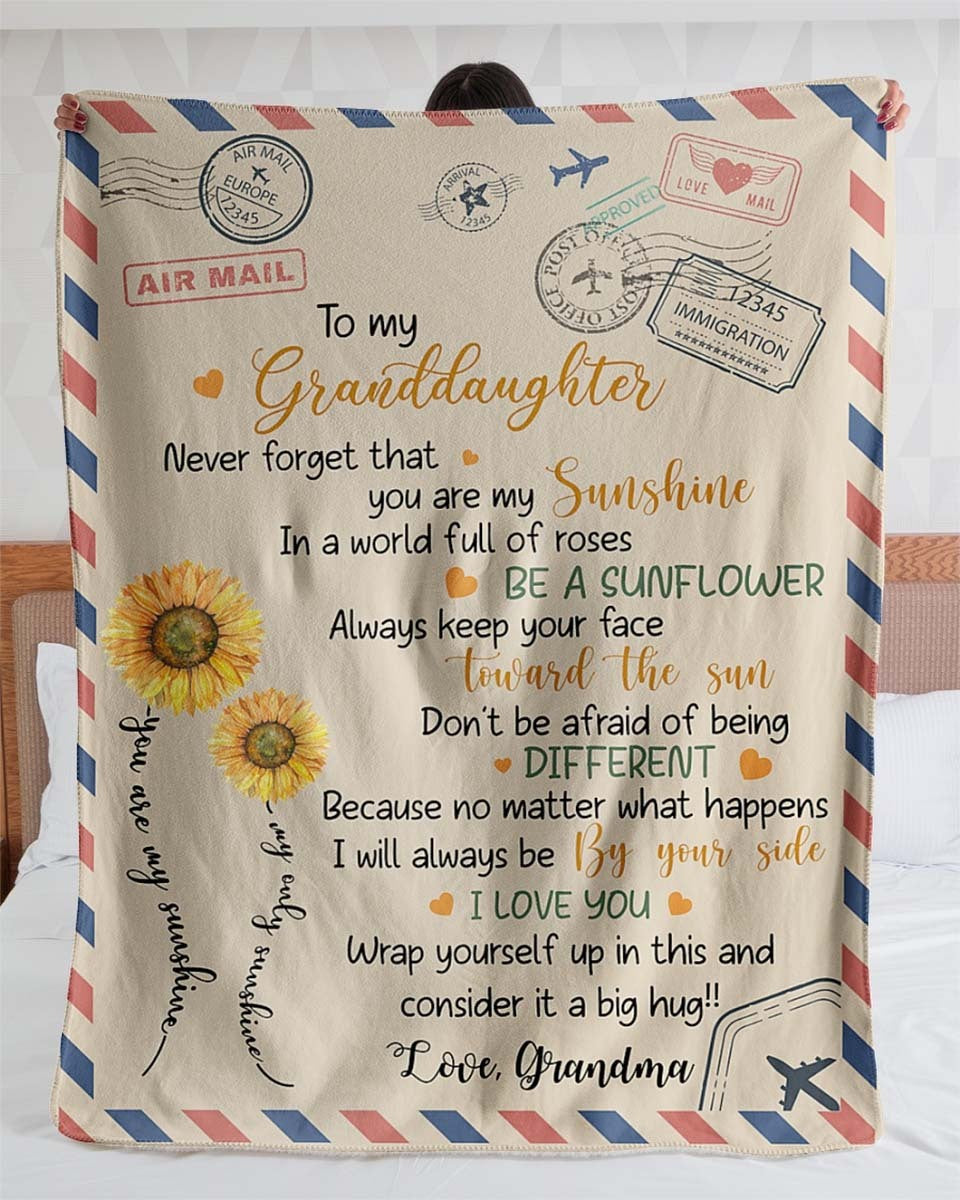 AIR MAIL
EUROPE
12345
ARRIVAL
12345
APPROVED
LOVE MAIL
AIR MAIL
POST OFFICE
POST OFFICE
12345
IMMIGRATION
************
To my
Granddaughter
Never forget that
you are my Sunshine
In a world full of roses
BE A SUNFLOWER
Always keep your face
toward the sun
Don't be afraid of being
DIFFERENT
Because no matter what happens
I will always be By your side
I LOVE YOU
Wrap yourself up in this and
consider it a big hug!!
Love, Grandma
you are my sunshine
my only sunshine